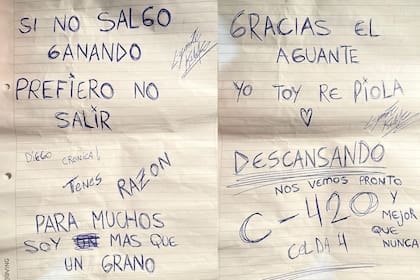 SI NO SALGO
GANANDO
PREFIERO NO
SALIR
DIEGO CRONICA!
TENES RAZON
PARA MUCHOS
SOY MAS QUE
UN GRANO
GRACIAS EL
AGUANTE
YO TOY RE PIOLA
DESCANSANDO
NOS VEMOS PRONTO
C-420 Y MEJOR
QUE
NUNCA
CELDA 4